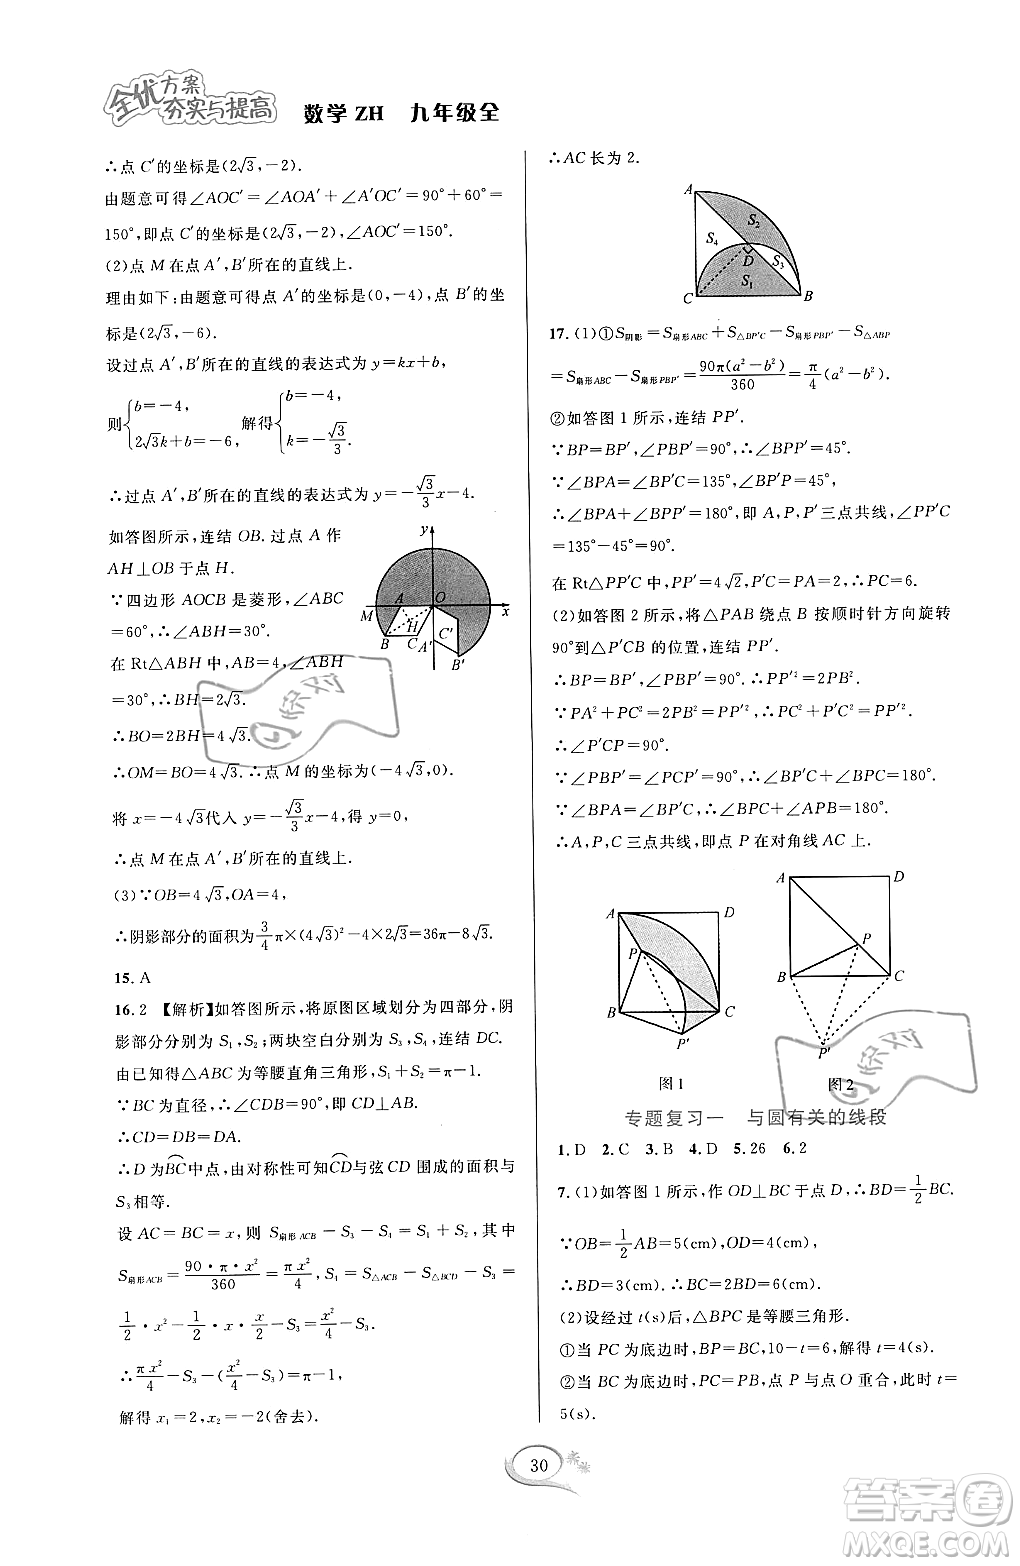 全优方案
夯实与提高
数学ZH 九年级全
∴点C′的坐标是(2√3,-2).
由题意可得∠AOC′=∠AOA′+∠A′OC′=90°+60°=
150°,即点C′的坐标是(2√3,-2),∠AOC′=150°.
(2)点M在点A′,B′所在的直线上.
理由如下:由题意可得点A′的坐标为(0,-4),点B′的坐
标是(2√3,-6).
设过点A′,B′所在的直线的表达式为y=kx+b,
则{b=-4, 2√3k+b=-6, 解得{b=-4, k=-√3/3.
∴过点A′,B′所在的直线的表达式为y=-√3/3x-4.
如答图所示,连结OB.过点A作
AH⊥OB于点H.
∵四边形AOCB是菱形,∠ABC
=60°,∴∠ABH=30°.
在Rt△ABH中,AB=4,∠ABH
=30°,∴BH=2√3.
∴BO=2BH=4√3.
y
A O x
M H
B C C′
A′ B′
∴OM=BO=4√3.∴点M的坐标为(-4√3,0).
将x=-4√3代入y=-√3/3x-4,得y=0,
∴点M在点A′,B′所在的直线上.
(3)∵OB=4√3,OA=4,
∴阴影部分的面积为3/4π×(4√3)²-4×2√3=36π-8√3.
15.A
16.2 【解析】如答图所示,将原图区域划分为四部分,阴
影部分分别为S₁,S₂;两块空白分别为S₃,S₄,连结DC.
由已知可得△ABC为等腰直角三角形,S₁+S₂=π-1.
∵BC为直径,∴∠CDB=90°,即CD⊥AB.
∴CD=DB=DA.
∴D为BC中点,由对称性可知CD与弦CD围成的面积与
S₃相等.
设AC=BC=x,则S扇形ACB-S₃-S₄=S₁+S₂,其中
S扇形ACB=90·π·x²/360=πx²/4,S₄=S△ACB-S△BCD-S₃=
1/2·x²-1/2·x·x/2-S₃=x²/4-S₃.
∴πx²/4-S₃-(x²/4-S₃)=π-1.
解得x₁=2,x₂=-2(舍去).
∴AC长为2.
A
S₂
S₄
D S₃
S₁
C B
17.(1)①S阴影=S扇形ABC+S△BP′C-S扇形PBP′-S△ABP
=S扇形ABC-S扇形PBP′=90π(a²-b²)/360=π/4(a²-b²).
②如答图1所示,连结PP′.
∵BP=BP′,∠PBP′=90°,∴∠BPP′=45°.
∵∠BPA=∠BP′C=135°,∠BPP′=45°,
∴∠BPA+∠BPP′=180°,即A,P,P′三点共线,∠PP′C
=135°-45°=90°.
在Rt△PP′C中,PP′=4√2,P′C=PA=2,∴PC=6.
(2)如答图2所示,将△PAB绕点B按顺时针方向旋转
90°到△P′CB的位置,连结PP′.
∴BP=BP′,∠PBP′=90°,∴PP′²=2PB².
∵PA²+PC²=2PB²=PP′²,∴PC²+P′C²=PP′².
∴∠P′CP=90°.
∵∠PBP′=∠PCP′=90°,∴∠BPC+∠BP′C=180°.
∵∠BPA=∠BP′C,∴∠BPC+∠APB=180°.
∴A,P,C三点共线,即点P在对角线AC上.
A D
P
B C
P′
图1
A D
P
B C
P′
图2
专题复习一 与圆有关的线段
1.D 2.C 3.B 4.D 5.26 6.2
7.(1)如答图1所示,作OD⊥BC于点D,∴BD=1/2BC.
∵OB=1/2AB=5(cm),OD=4(cm),
∴BD=3(cm),∴BC=2BD=6(cm).
(2)设经过t(s)后,△BPC是等腰三角形.
①当PC为底边时,BP=BC,10-t=6,解得t=4(s).
②当BC为底边时,PC=PB,点P与点O重合,此时t=
5(s).
30
快对
快对
答案圈
MXQE.COM